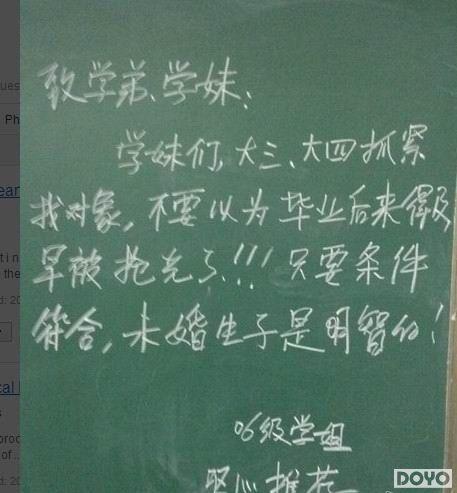 致学弟、学妹:
学妹们,大三、大四抓紧
找对象,不要以为毕业后来得及
早被抢光了!!!只要条件
符合,未婚生子是明智的!
06级学姐
心推荐
DOYO
Ph